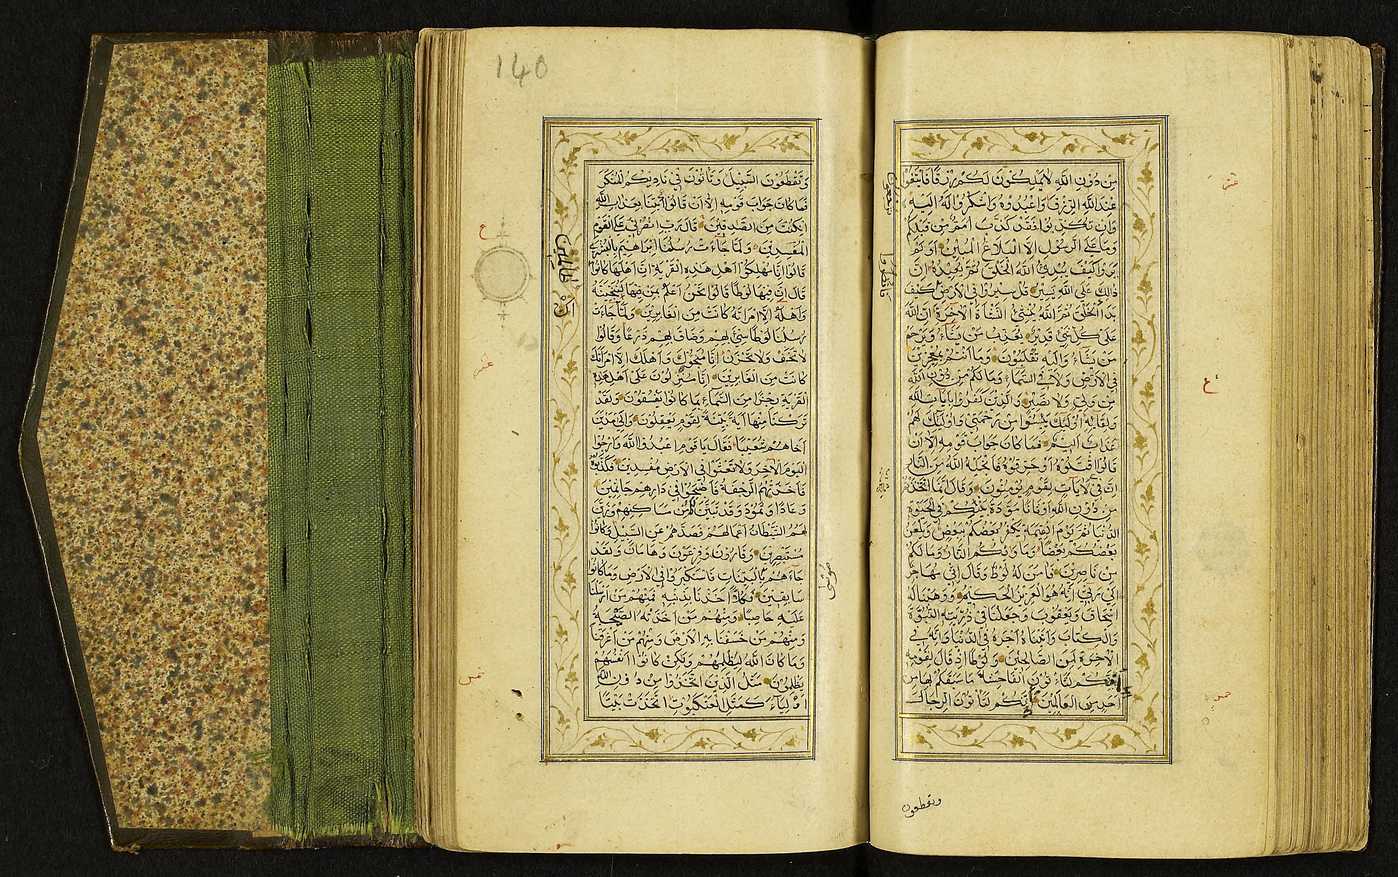 مِنْ دُونِ اللَّهِ لَا يَمْلِكُونَ لَكُمْ رِزْقًا فَابْتَغُوا
عِنْدَ اللَّهِ الرِّزْقَ وَاعْبُدُوهُ وَاشْكُرُوا لَهُ إِلَيْهِ
وَإِنْ تُكَذِّبُوا فَقَدْ كَذَّبَ أُمَمٌ مِنْ قَبْلِكُمْ
وَمَا عَلَى الرَّسُولِ إِلَّا الْبَلَاغُ الْمُبِينُ أَوَلَمْ
يَرَوْا كَيْفَ يُبْدِئُ اللَّهُ الْخَلْقَ ثُمَّ يُعِيدُهُ إِنَّ
ذَلِكَ عَلَى اللَّهِ يَسِيرٌ قُلْ سِيرُوا فِي الْأَرْضِ كَيْفَ
بَدَأَ الْخَلْقَ ثُمَّ اللَّهُ يُنْشِئُ النَّشْأَةَ الْآخِرَةَ إِنَّ اللَّهَ
عَلَى كُلِّ شَيْءٍ قَدِيرٌ يُعَذِّبُ مَنْ يَشَاءُ وَيَرْحَمُ
مَنْ يَشَاءُ وَإِلَيْهِ تُقْلَبُونَ وَمَا أَنْتُمْ بِمُعْجِزِينَ
فِي الْأَرْضِ وَلَا فِي السَّمَاءِ وَمَا لَكُمْ مِنْ دُونِ اللَّهِ
مِنْ وَلِيٍّ وَلَا نَصِيرٍ وَالَّذِينَ كَفَرُوا بِآيَاتِ اللَّهِ
وَلِقَائِهِ أُولَئِكَ يَئِسُوا مِنْ رَحْمَتِي وَأُولَئِكَ لَهُمْ
عَذَابٌ أَلِيمٌ فَمَا كَانَ جَوَابَ قَوْمِهِ إِلَّا أَنْ
قَالُوا اقْتُلُوهُ أَوْ حَرِّقُوهُ فَأَنْجَاهُ اللَّهُ مِنَ النَّارِ
إِنَّ فِي ذَلِكَ لَآيَاتٍ لِقَوْمٍ يُؤْمِنُونَ وَقَالَ إِنَّمَا اتَّخَذْتُمْ
مِنْ دُونِ اللَّهِ أَوْثَانًا مَوَدَّةَ بَيْنِكُمْ فِي الْحَيَوةِ
الدُّنْيَا ثُمَّ يَوْمَ الْقِيَمَةِ يَكْفُرُ بَعْضُكُمْ بِبَعْضٍ وَيَلْعَنُ
بَعْضُكُمْ بَعْضًا وَمَأْوَيكُمُ النَّارُ وَمَا لَكُمْ
مِنْ نَاصِرِينَ فَآمَنَ لَهُ لُوطٌ وَقَالَ إِنِّي مُهَاجِرٌ
إِلَى رَبِّي إِنَّهُ هُوَ الْعَزِيزُ الْحَكِيمُ وَوَهَبْنَا لَهُ
إِسْحَاقَ وَيَعْقُوبَ وَجَعَلْنَا فِي ذُرِّيَّتِهِ النُّبُوَّةَ
وَالْكِتَابَ وَآتَيْنَاهُ أَجْرَهُ فِي الدُّنْيَا وَإِنَّهُ فِي
الْآخِرَةِ لَمِنَ الصَّالِحِينَ وَلُوطًا إِذْ قَالَ لِقَوْمِهِ
إِنَّكُمْ لَتَأْتُونَ الْفَاحِشَةَ مَا سَبَقَكُمْ بِهَا مِنْ
أَحَدٍ مِنَ الْعَالَمِينَ أَئِنَّكُمْ لَتَأْتُونَ الرِّجَالَ
وتقطعون
140
وَتَقْطَعُونَ السَّبِيلَ وَتَأْتُونَ فِي نَادِيكُمُ الْمُنْكَرَ
فَمَا كَانَ جَوَابَ قَوْمِهِ إِلَّا أَنْ قَالُوا ائْتِنَا بِعَذَابِ اللَّهِ
إِنْ كُنْتَ مِنَ الصَّادِقِينَ قَالَ رَبِّ انْصُرْنِي عَلَى الْقَوْمِ
الْمُفْسِدِينَ وَلَمَّا جَاءَتْ رُسُلُنَا إِبْرَاهِيمَ بِالْبُشْرَى
قَالُوا إِنَّا مُهْلِكُوا أَهْلِ هَذِهِ الْقَرْيَةِ إِنَّ أَهْلَهَا كَانُوا
ظَالِمِينَ
قَالَ إِنَّ فِيهَا لُوطًا قَالُوا نَحْنُ أَعْلَمُ بِمَنْ فِيهَا لَنُنَجِّيَنَّهُ
وَأَهْلَهُ إِلَّا امْرَأَتَهُ كَانَتْ مِنَ الْغَابِرِينَ وَلَمَّا جَاءَتْ
رُسُلُنَا لُوطًا سِيءَ بِهِمْ وَضَاقَ بِهِمْ ذَرْعًا وَقَالُوا
لَا تَخَفْ وَلَا تَحْزَنْ إِنَّا مُنَجُّوكَ وَأَهْلَكَ إِلَّا امْرَأَتَكَ
كَانَتْ مِنَ الْغَابِرِينَ إِنَّا مُنْزِلُونَ عَلَى أَهْلِ هَذِهِ
الْقَرْيَةِ رِجْزًا مِنَ السَّمَاءِ بِمَا كَانُوا يَفْسُقُونَ وَلَقَدْ
تَرَكْنَا مِنْهَا آيَةً بَيِّنَةً لِقَوْمٍ يَعْقِلُونَ وَإِلَى مَدْيَنَ
أَخَاهُمْ شُعَيْبًا فَقَالَ يَا قَوْمِ اعْبُدُوا اللَّهَ وَارْجُوا
الْيَوْمَ الْآخِرَ وَلَا تَعْثَوْا فِي الْأَرْضِ مُفْسِدِينَ فَكَذَّبُوهُ
فَأَخَذَتْهُمُ الرَّجْفَةُ فَأَصْبَحُوا فِي دَارِهِمْ جَاثِمِينَ
وَعَادًا وَثَمُودَ وَقَدْ تَبَيَّنَ لَكُمْ مِنْ مَسَاكِنِهِمْ وَزَيَّنَ
لَهُمُ الشَّيْطَانُ أَعْمَالَهُمْ فَصَدَّهُمْ عَنِ السَّبِيلِ وَكَانُوا
مُسْتَبْصِرِينَ وَقَارُونَ وَفِرْعَوْنَ وَهَامَانَ وَلَقَدْ
جَاءَهُمْ بِالْبَيِّنَاتِ فَاسْتَكْبَرُوا فِي الْأَرْضِ وَمَا كَانُوا
سَابِقِينَ فَكُلًّا أَخَذْنَا بِذَنْبِهِ فَمِنْهُمْ مَنْ أَرْسَلْنَا
عَلَيْهِ حَاصِبًا وَمِنْهُمْ مَنْ أَخَذَتْهُ الصَّيْحَةُ
وَمِنْهُمْ مَنْ خَسَفْنَا بِهِ الْأَرْضَ وَمِنْهُمْ مَنْ أَغْرَقْنَا
وَمَا كَانَ اللَّهُ لِيَظْلِمَهُمْ وَلَكِنْ كَانُوا أَنْفُسَهُمْ
يَظْلِمُونَ مَثَلُ الَّذِينَ اتَّخَذُوا مِنْ دُونِ اللَّهِ
أَوْلِيَاءَ كَمَثَلِ الْعَنْكَبُوتِ اتَّخَذَتْ بَيْتًا